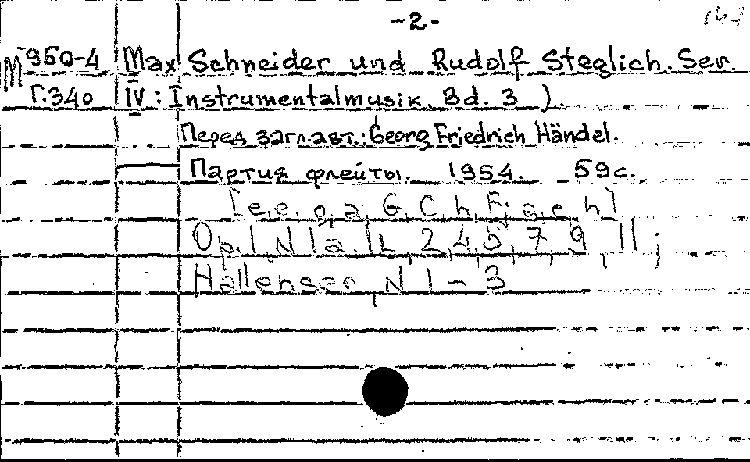 -2-
М 960-4 Max Schneider und Rudolf Steglich. Ser.
Г.340 IV: Instrumentalmusik. Bd. 3 )
Перед загл. авт.: Georg Friedrich Händel.
Партия флейты. 1954. 59с.
[e, e, g, a, G, C, h, F, g, e, h]
Op. 1, N 1a, 1b, 2, 4, 5, 7, 9, 11;
Hallenser N 1-3